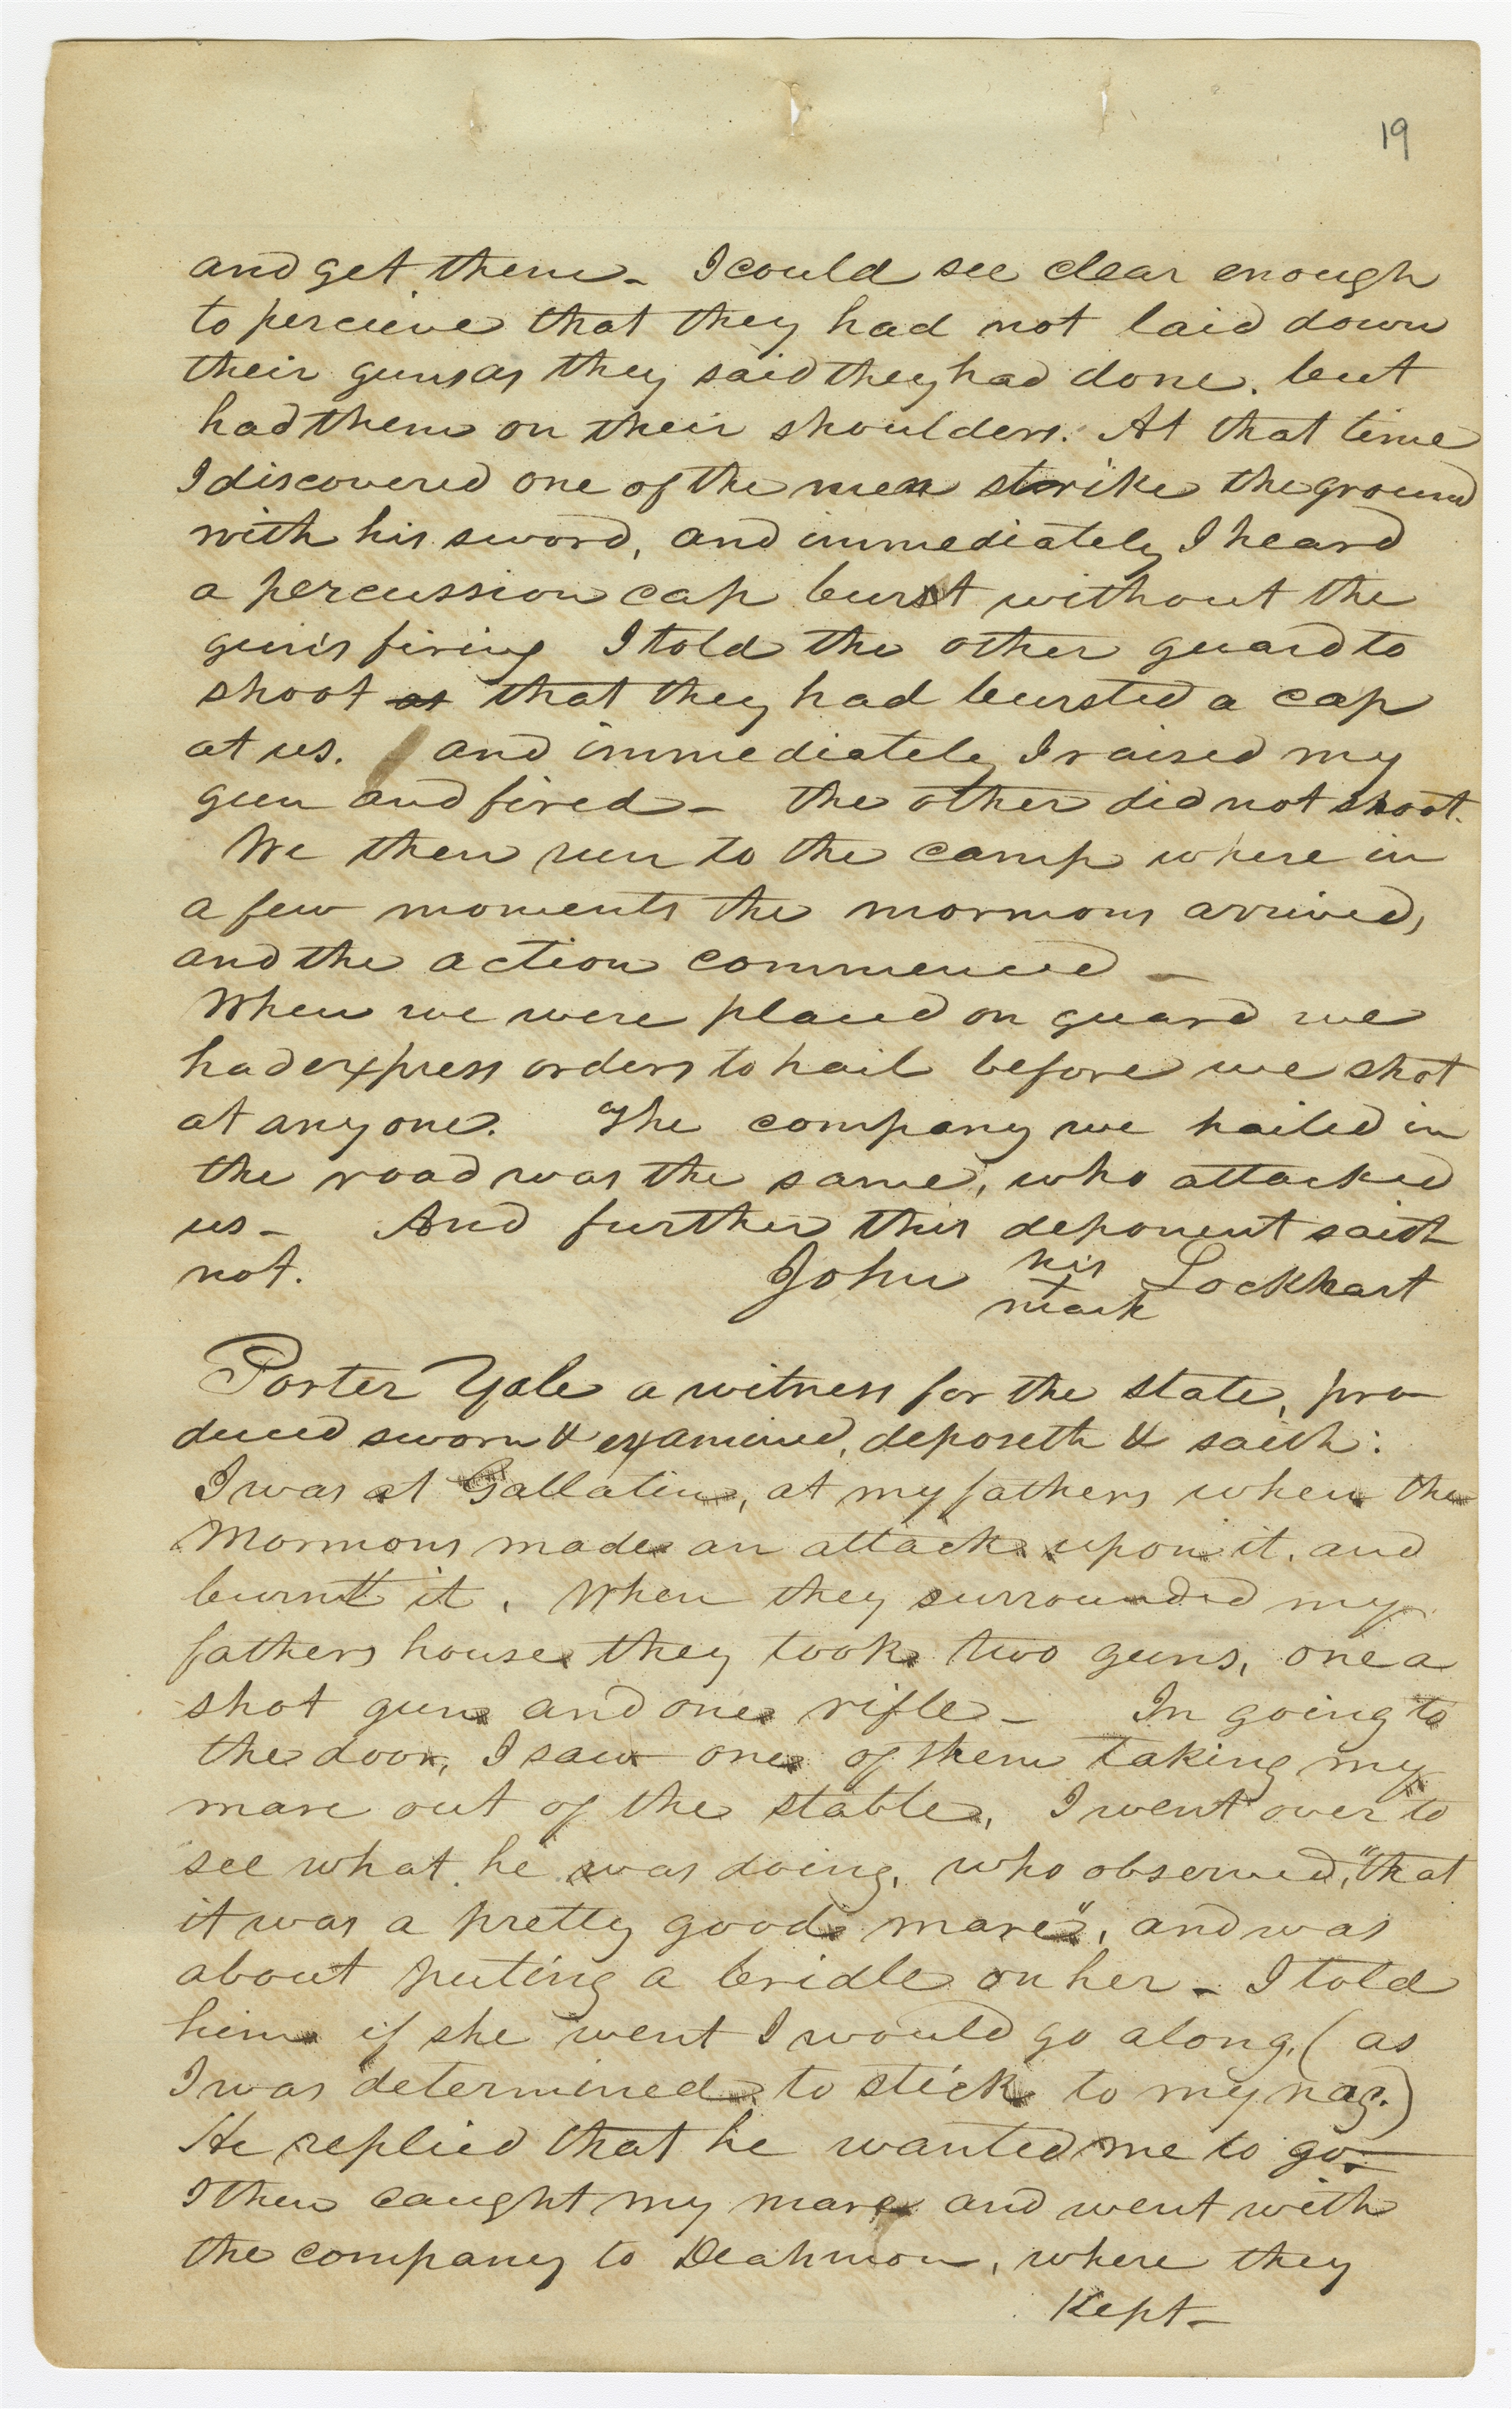 19
and get them – I could see clear enough
to percieve that they had not laid down
their guns as they said they had done. but
had them on their shoulders. At that time
I discovered one of the men strike the ground
with his sword, and immediately I heard
a percussion cap burst without the
gun's firing I told the other guard to
shoot as that they had bursted a cap
at us. and immediately I raised my
gun and fired – the other did not shoot.
We then run to the camp where in
a few moments the mormons arrived,
and the action commenced –
When we were placed on guard we
had express orders to hail before we shot
at any one. The company we hailed in
the road was the same, who attacked
us – And further this deponent saith
not. John his + mark Lockhart
Porter Yale a witness for the state, pro-
duced sworn & examined, deposeth & saith:
I was at Gallatin, at my fathers when the
Mormons made an attack upon it. and
burnt it. When they surrounded my
fathers house they took two guns, one a
shot gun and one rifle – In going to
the door, I saw one of them taking my
mare out of the stable, I went over to
see what he was doing, who observed, "that
it was a pretty good mare", and was
about puting a bridle on her – I told
him if she went I would go along, (as
I was determined to stick to my nag.)
He replied that he wanted me to go –
I then caught my mare and went with
the company to Deahmon, where they
Kept –